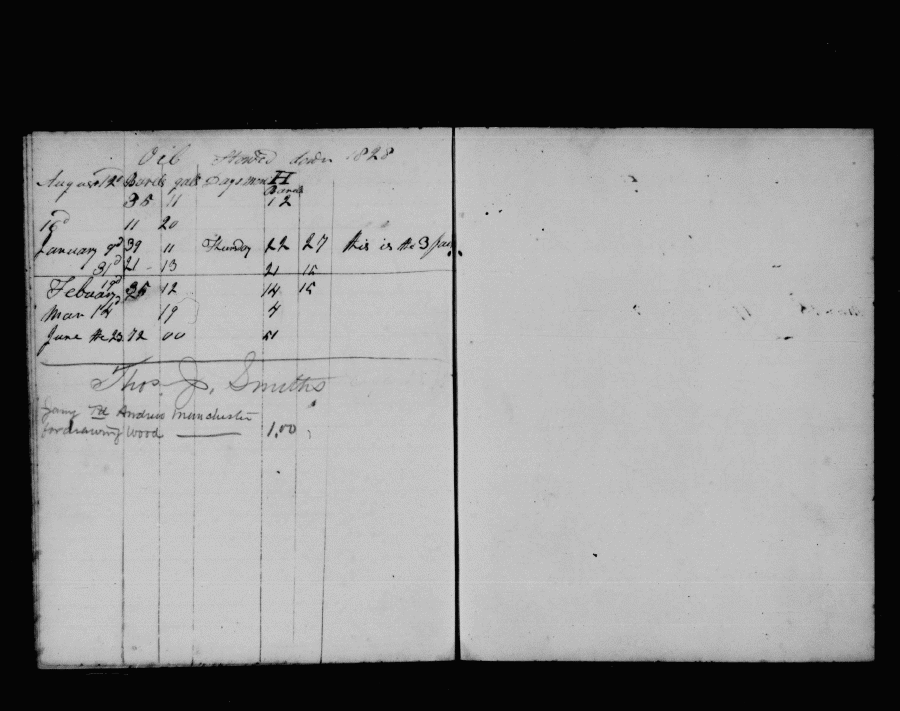 Oil Stowed down 1828
August 12d Barels gals Days mon H Barels
35 11 12
16d 11 20
January 9d 39 11 Thursday 22 27 this is the 3
31d 21 13 21 15
Febuary 19d 35 12 14 15
Mar 14 19 4
June the 23 72 00 51
Thos. J. Smiths
Andrus Manchester
for drawing Wood 1,00